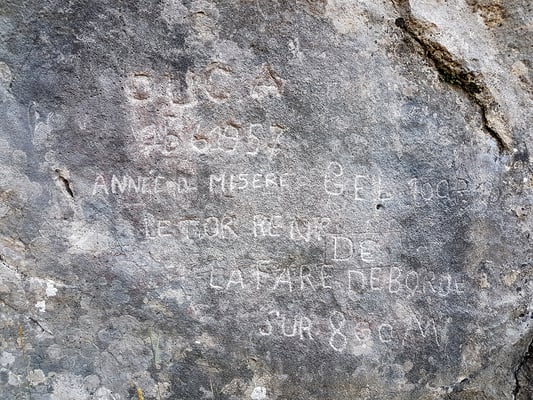 DUCA
1956 1957
ANNÉE D MISERE GEL 100P
LE TOR REMP
DE
LA FARE DEBORDE
SUR 800 M